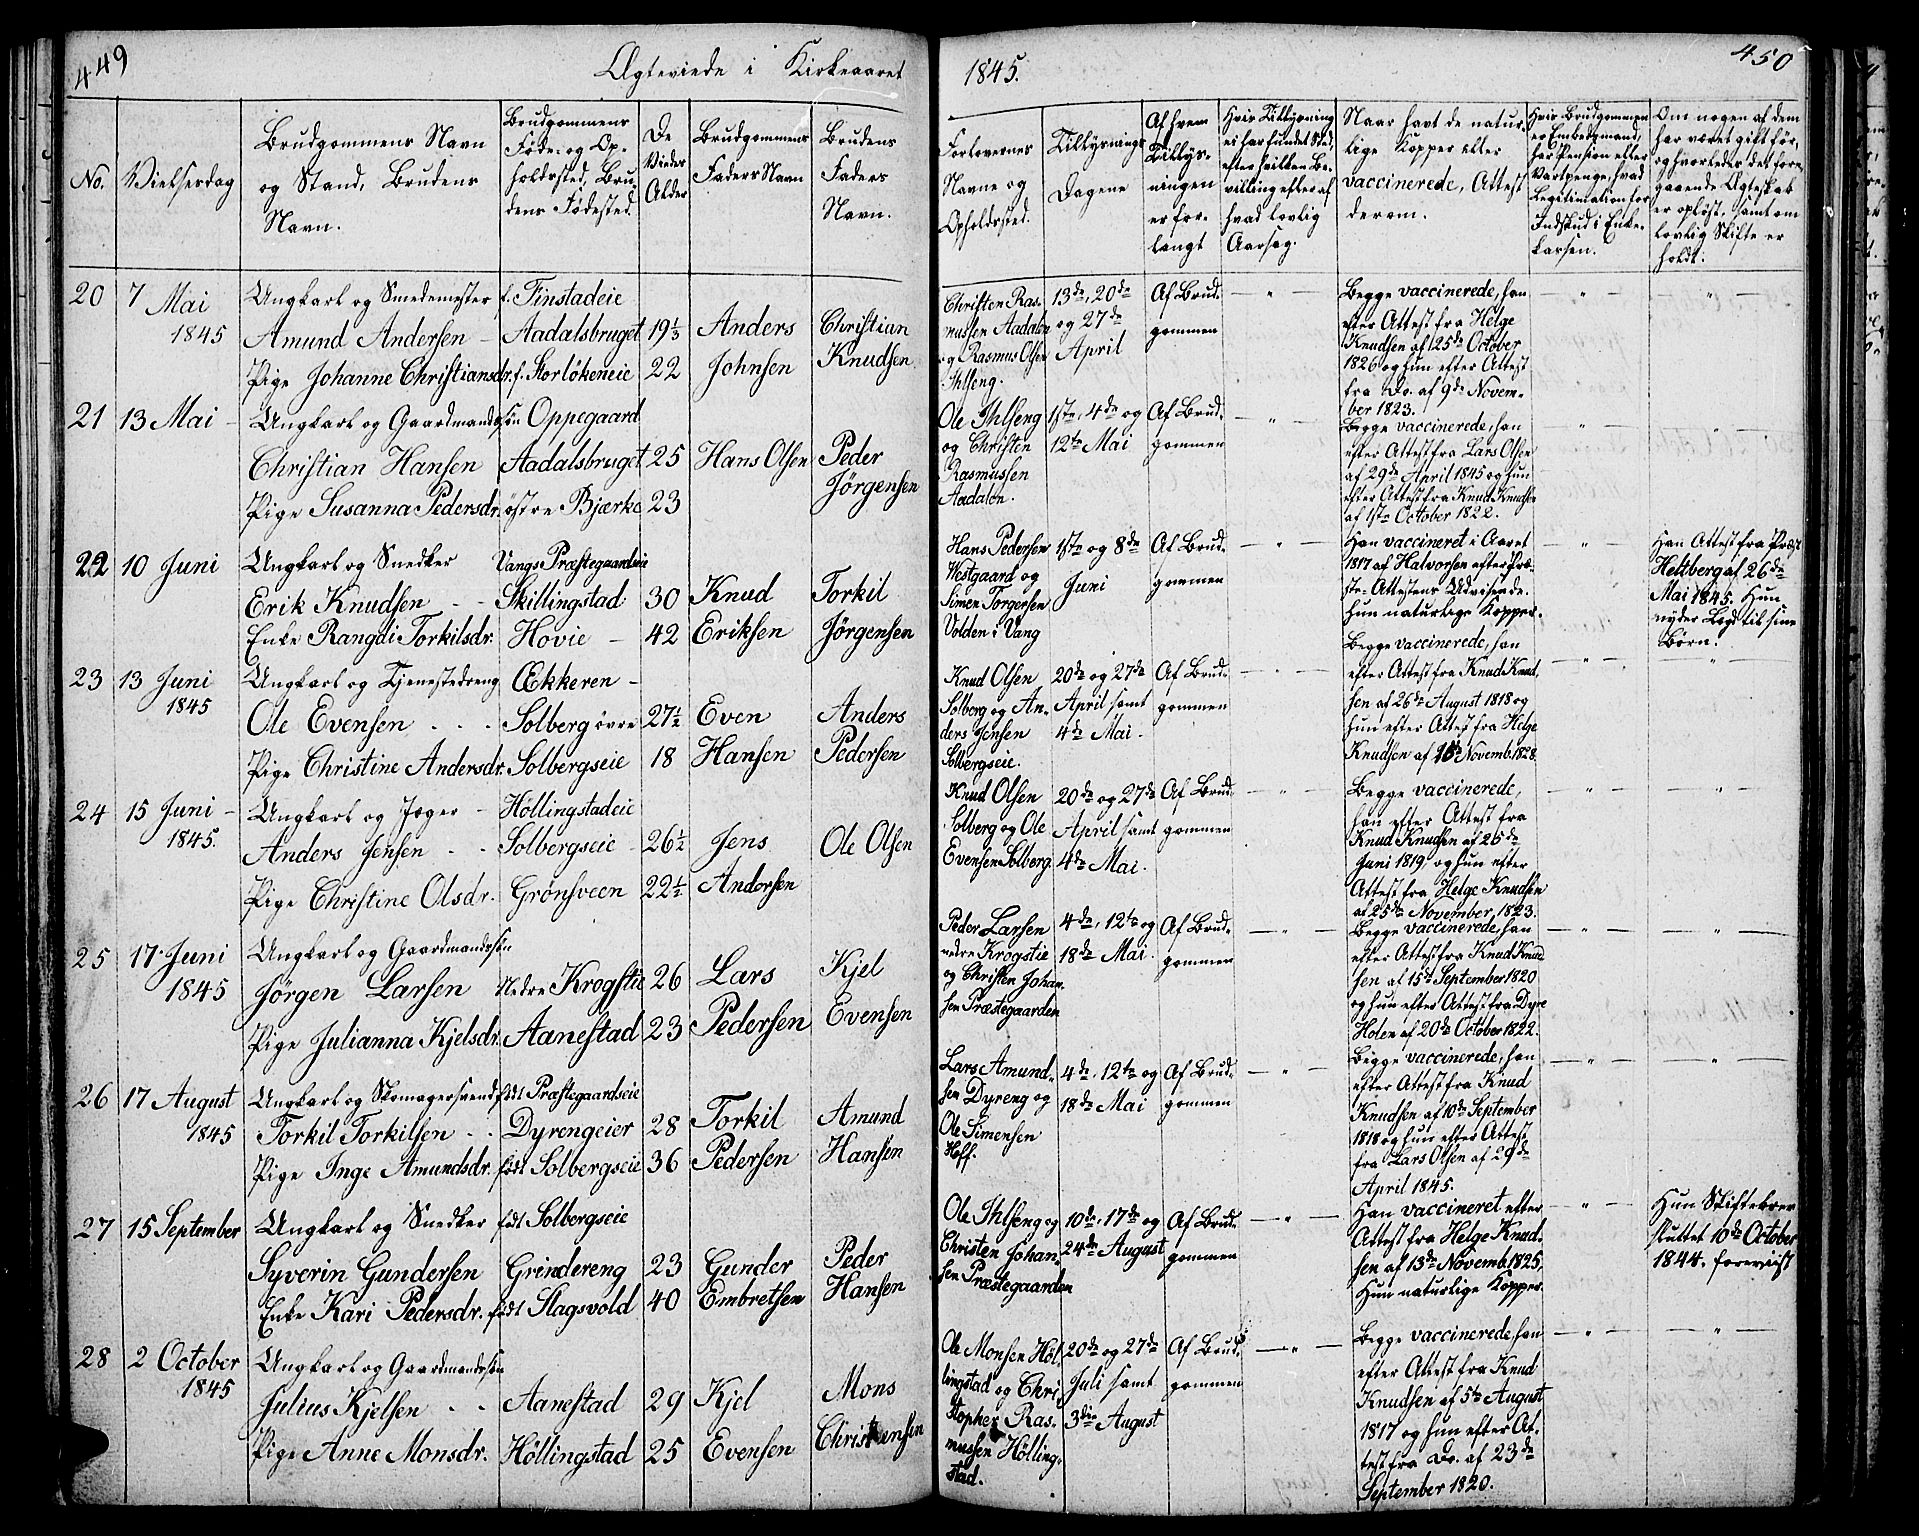 449
Ægteviede i Kirkeaaret
No.
Vielsesdag
Brudgommens Navn
og Stand, Brudens
Navn.
Brudgommens
Føde- og Op-
holdssted, Bru-
dens Fødested.
De
Viedes
Alder
Brudgommens
Faders Navn
Brudens
Faders
Navn.
20 7 Mai
1845
Ungkarl og Smedemester
Amund Andersen -
Pige Johanne Christiansdr.
f. Finstadeie
Aadalsbruget
f. Storlökeneie
19⅓
22
Anders
Johnsen
Christian
Knudsen
21 13 Mai -
Ungkarl og Gaardmandssøn
Christian Hansen
Pige Susanna Pedersdr.
Oppegaard
Aadalsbruget
östre Bjærke
25
23
Hans Olsen
Peder
Jörgensen
22 10 Juni
Ungkarl og Snedker
Erik Knudsen - -
Enke Rangdi Torkilsdr.
Vangs Præstegaardseie
Skillingstad
Hovie -
30
42
Knud
Eriksen
Torkil
Jörgensen
23 13 Juni
1845
Ungkarl og Tjenestedreng
Ole Evensen - - -
Pige Christine Andersdr.
Ækkeren -
Solberg övre
Solbergseie
27½
18
Even
Hansen
Anders
Pedersen
24 15 Juni -
1845.
Ungkarl og Jæger -
Anders Jensen - -
Pige Christine Olsdr.
Höllingstadeie
Solbergseie
Grönsveen
26½
22½
Jens
Andersen
Ole Olsen
25 17 Juni
1845
Ungkarl og Gaardmandssøn
Jörgen Larsen
Pige Julianna Kjelsdr.
Nedre Krogstie
Aanestad
26
23
Lars
Pedersen
Kjel
Evensen
26 17 August
1845
Ungkarl og Skomagersvend
Torkil Torkilsen - -
Pige Inge Amundsdr.
født Præstegaardseie
Dyrengeier
født Solbergseie
28
36
Torkil
Pedersen
Amund
Hansen
27 15 September
Ungkarl og Snedker
Syverin Gundersen
Enke Kari Pedersdr.
født Solbergseie
Grindereng
født Slagsvold
23
40
Gunder
Embretsen
Peder
Hansen
28 2 October
1845
Ungkarl og Gaardmandssøn
Julius Kjelsen - -
Pige Anne Monsdr.
Aanestad
Höllingstad
29
25
Kjel
Evensen
Mons
Christensen
1845.
450
Forlovernes
Navne og
Opholdssted.
Tillysnings
Dagene
Af hvem
Tillys-
ningen
er for-
langt
Hvis Tillysning
ei har fundet Sted,
efter hvilken Be-
villing eller af
hvad lovlig
Aarsag.
Naar havt de natur-
lige Kopper eller
vaccinerede, Attest
derom.
Hvis Brudgommen
er Embedsmand,
har Pension eller
Vartpenge, hvad
Legitimation for
Indskud i Enke-
kassen.
Om nogen af dem
har været gift før,
og hvorledes det fore-
gaaende Ægteskab
er opløst, samt om
lovlig Skifte er
holdt.
Christen Ras-
mussen Aadalen
og Rasmus Olsen
Ihlseng.
13de, 20de
og 27de
April
Af Brud-
gommen
Begge vaccinerede, han
efter Attest fra Helge
Knudsen af 25de October
1826 og hun efter Attest
fra Do. af 9de Novem-
ber 1823.
Ole Ihlseng
og Christen
Rasmussen
Aadalen.
1ste, 4de og
12te Mai
Af Brud-
gommen
Begge vaccinerede, han
efter Attest fra Lars Olsen
af 29de April 1845 og hun
efter Attest fra Knud Knudsen
af 1ste October 1822.
Hans Pedersen
Westgaard og
Simen Torgersen
Volden i Vang
1ste og 8de
Juni
Af Brud-
gommen
Han vaccineret i Aaret
1817 af Halvorsen efter Præ-
ste-Attestens Udvisende.
Hun naturlige Kopper.
Han Attest fra Præst
Heltberg af 26de
Mai 1845. Hun
nyder Lægd til sine
Børn.
Knud Olsen
Solberg og An-
ders Jensen
Solbergseie.
20de og 27de
April samt
4de Mai.
Af Brud-
gommen
Begge vaccinerede, han
efter Attest fra Knud Knud-
sen af 26de August 1818 og
hun efter Attest fra Helge
Knudsen af Novemb. 1828.
Knud Olsen
Solberg og Ole
Evensen Solberg
20de og 27de
April samt
4de Mai.
Af Brud-
gommen
Begge vaccinerede,
han efter Attest fra
Knud Knudsen af 26de
Juni 1819 og hun efter
Attest fra Helge Knudsen
af 25de November 1823.
Peder Larsen
nedre Krogstie
og Christen Johan-
sen Præstegaarden
4de, 12te og
18de Mai.
Af Brud-
gommen
Begge vaccinerede, han
efter Attest fra Knud Knud-
sen af 15de September 1820
og hun efter Attest fra Dyre
Holen af 20de October 1822.
Lars Amund-
sen Dyreng og
Ole Simensen
Hoff.
4de, 12te og
18de Mai
Af Brud-
gommen
Begge vaccinerede, han
efter Attest fra Knud
Knudsen af 10de September
1818 og hun efter Attest
fra Lars Olsen af 29de
April 1845.
Ole Ihlseng og
Christen Johan-
sen Præstegaarden
10de, 17de og
24de August
Af Brud-
gommen
Han vaccineret efter
Attest fra Helge Knud-
sen af 13de Novemb. 1825,
Hun naturlige Kopper.
Hun Skiftebrev
sluttet 10de October
1844. foreviist
Ole Monsen Höl-
lingstad og Chri-
stopher Ras-
mussen Hölling-
stad.
20de og 27de
Juli samt
3die August
Af Brud-
gommen
Begge vaccinerede, han
efter Attest fra Knud
Knudsen af 5te August
1817 og hun efter At-
test fra Do. af 23de
September 1820.